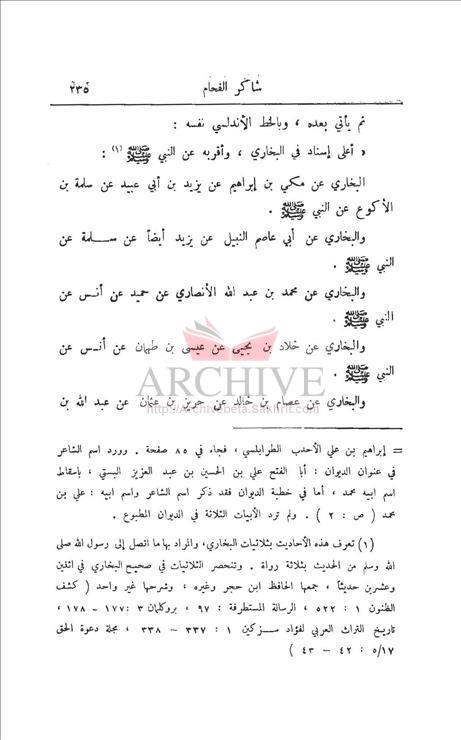 شاكر الفحام
٢٣٥
ثم يأتي بعده ، وبالخط الأندلسي نفسه :
« أعلى إسناد في البخاري ، وأقربه عن النبي ﷺ (١) :
البخاري عن مكي بن إبراهيم عن يزيد بن أبي عبيد عن سلمة بن
الأكوع عن النبي ﷺ .
والبخاري عن أبي عاصم النبيل عن يزيد أيضاً عن سلمة عن
النبي ﷺ .
والبخاري عن محمد بن عبد الله الأنصاري عن حميد عن أنس عن
النبي ﷺ .
والبخاري عن خلاد بن يحيى عن عيسى بن طهمان عن أنس عن
النبي ﷺ .
ARCHIVE
http://Archivebeta.Sakhrit.com
والبخاري عن عصام بن خالد عن حريز بن عثمان عن عبد الله بن
= إبراهيم بن علي الأحدب الطرابلسي ، فجاء في ٨٥ صفحة . وورد اسم الشاعر
في عنوان الديوان : أبا الفتح علي بن الحسين بن عبد العزيز البستي ، باسقاط
اسم ابيه محمد ، أما في خطبة الديوان فقد ذكر اسم الشاعر واسم ابيه : علي بن
محمد ( ص : ٢ ) . ولم ترد الأبيات الثلاثة في الديوان المطبوع .
(١) تعرف هذه الأحاديث بثلاثيات البخاري، والمراد بها ما اتصل إلى رسول الله صلى
الله وسلم من الحديث بثلاثة رواة . وتنحصر الثلاثيات في صحيح البخاري في اثنين
وعشرين حديثاً ، جمعها الحافظ ابن حجر وغيره ، وشرحها غير واحد ( كشف
الظنون ١ : ٥٢٢ ، الرسالة المستطرفة : ٩٧ ، بروكلمان ٣ : ١٧٧ - ١٧٨ ،
تاريخ التراث العربي لفؤاد سزكين ١ : ٣٣٧ - ٣٣٨ ، مجلة دعوة الحق
٥/١٧ : ٤٢ - ٤٣ )